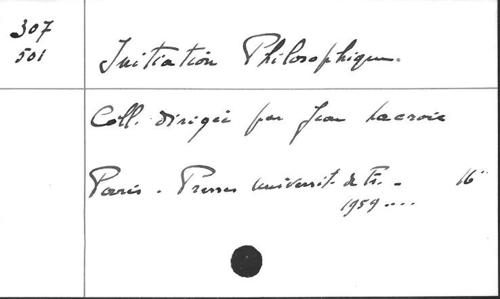 307
501
Initiation Philosophique.
Coll. dirigée par Jean Lacroix
Paris - Presses Universit. de Fr. - 16°
1959....